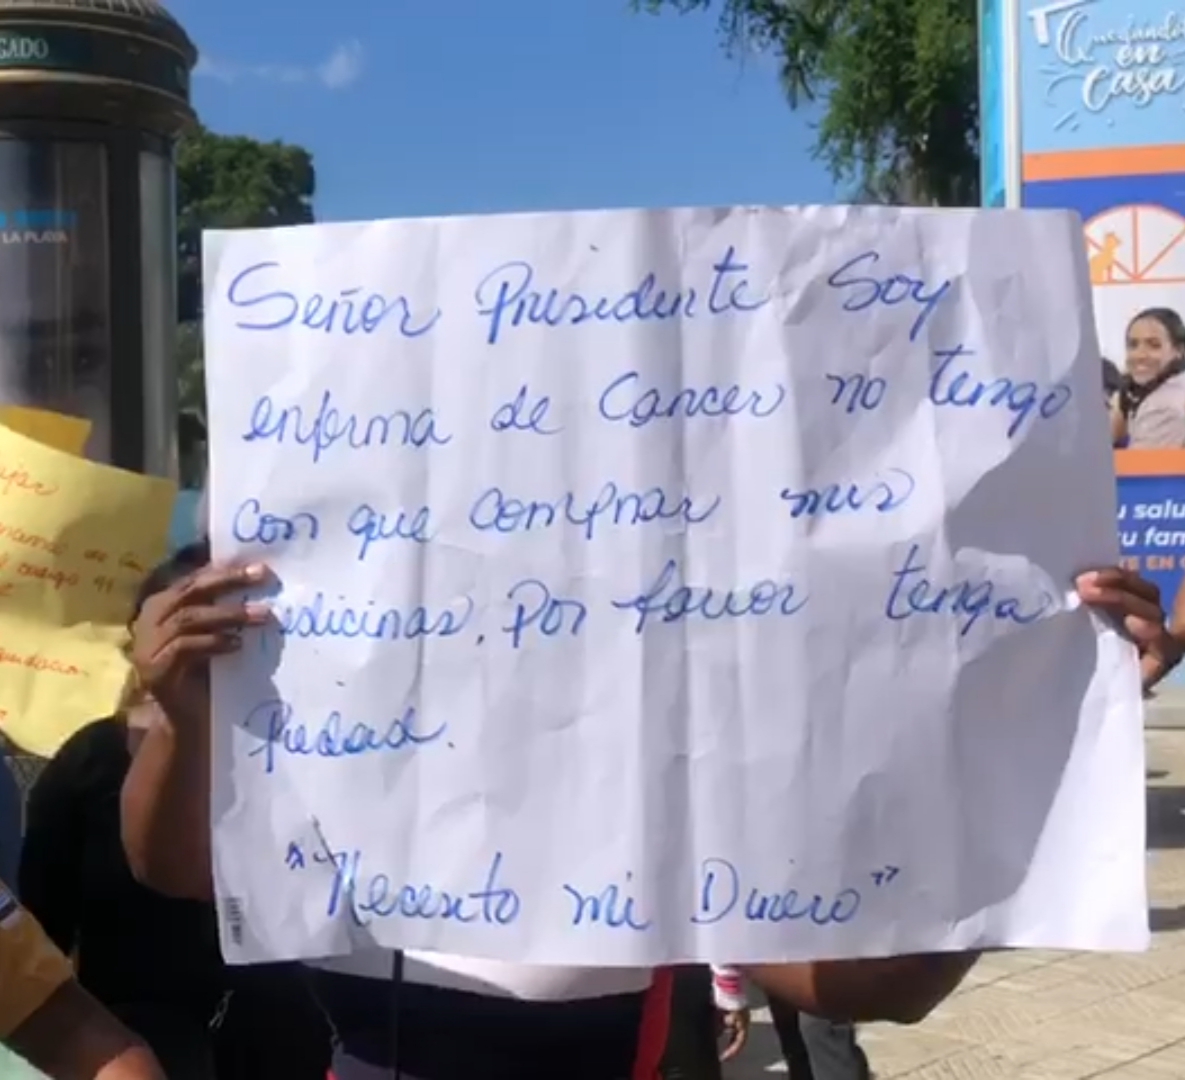 Señor Presidente Soy
enferma de Cancer no tengo
con que comprar mis
medicinas. Por favor tenga
Piedad.
"Necesito mi Dinero"
GADO
LA PLAYA
en
Casa
u salu
u fam
codigo 41